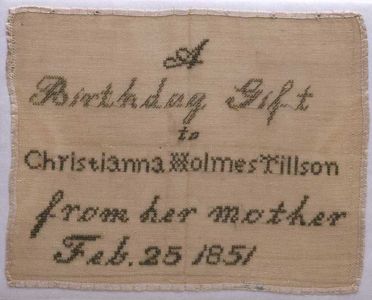 A
Birthday Gift
to
Christianna Holmes Tillson
from her mother
Feb. 25 1851